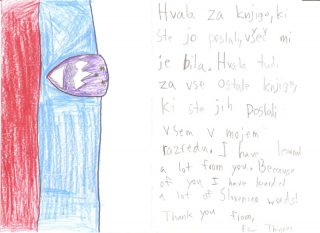 Hvala za knjige, ki
ste jo poslali, všeč mi
je bila. Hvala tudi
za vse ostale knjige,
ki ste jih poslali
vsem v mojem
razredu. I have learned
a lot from you. Because
of you I have learned
a lot of Slovenian words!
Thank you from,